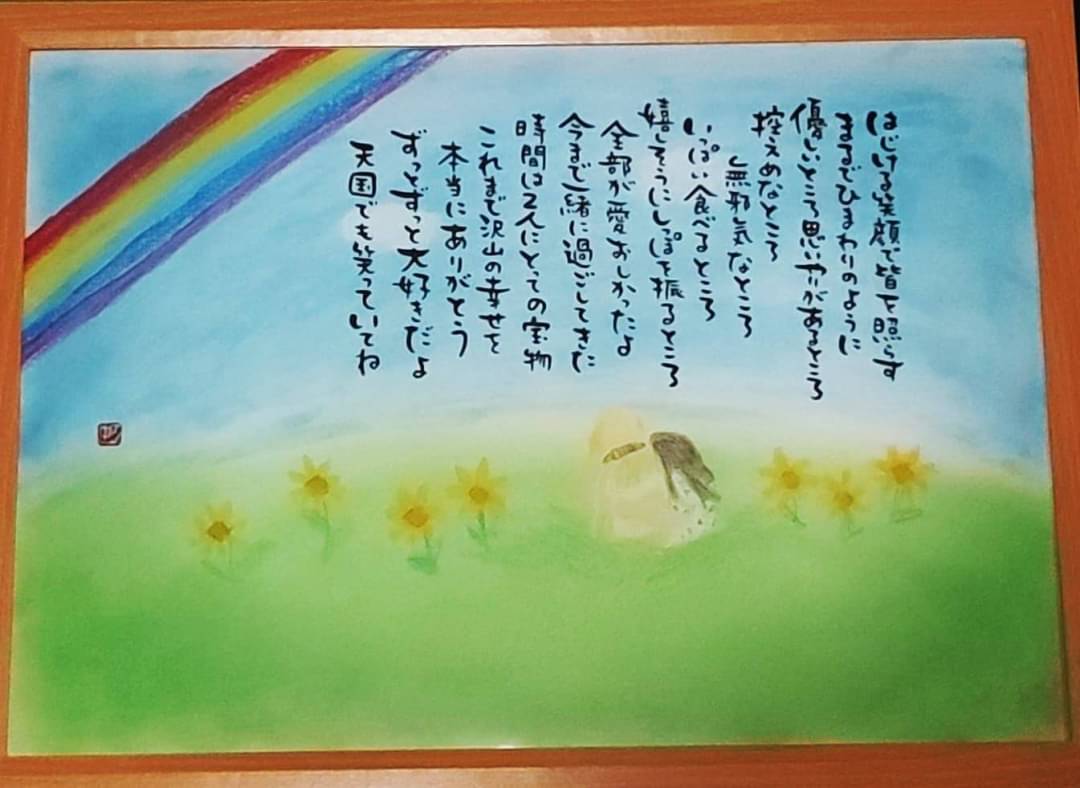 はじける笑顔で皆を照らす
まるでひまわりのように
優しいところ思いやりがあるところ
控えめなところ
無邪気なところ
いっぱい食べるところ
嬉しそうにしっぽを振るところ
全部が愛おしかったよ
今まで一緒に過ごしてきた
時間は2人にとっての宝物
これまで沢山の幸せを
本当にありがとう
ずっとずっと大好きだよ
天国でも笑っていてね